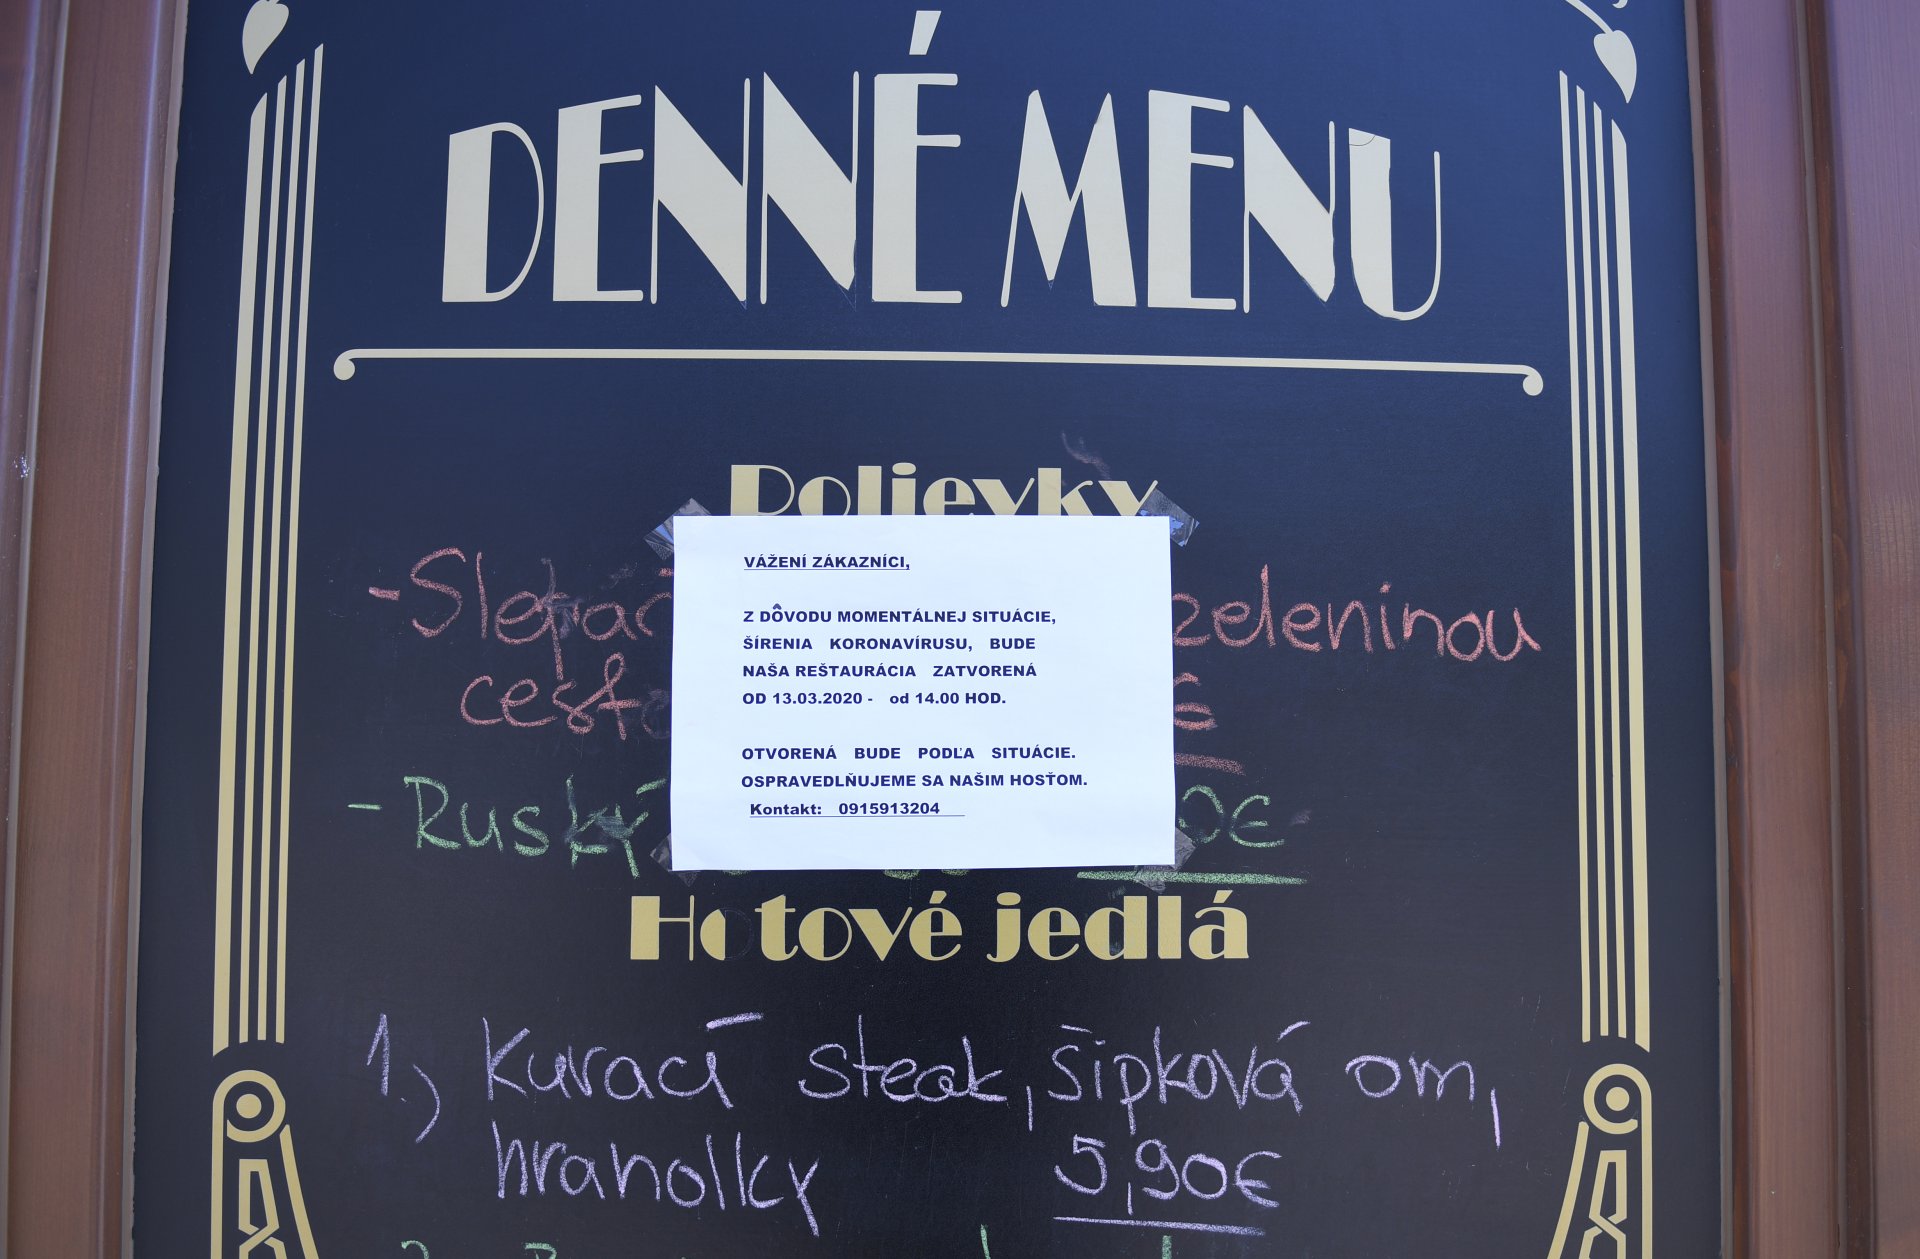 DENNÉ MENU
Polievky
VÁŽENÍ ZÁKAZNÍCI,
Z DÔVODU MOMENTÁLNEJ SITUÁCIE,
ŠÍRENIA KORONAVÍRUSU, BUDE
NAŠA REŠTAURÁCIA ZATVORENÁ
OD 13.03.2020 - od 14.00 HOD.
OTVORENÁ BUDE PODĽA SITUÁCIE.
OSPRAVEDLŇUJEME SA NAŠIM HOSŤOM.
Kontakt: 0915913204
- zeleninou
€
- Ruský 0€
Hotové jedlá
1.) Kurací steak, šípková om,
hranolky 5,90€